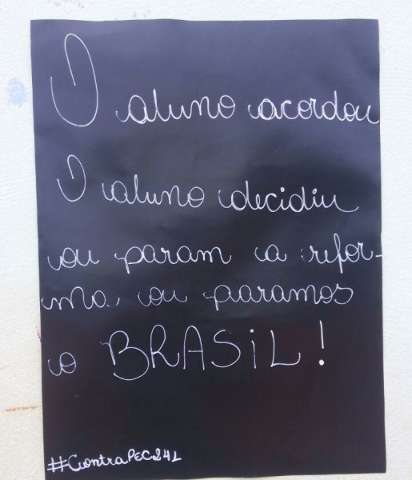 O aluno acordou
O aluno decidiu
ou param a refor-
ma, ou paramos
o BRASiL!
#ContraPEC241